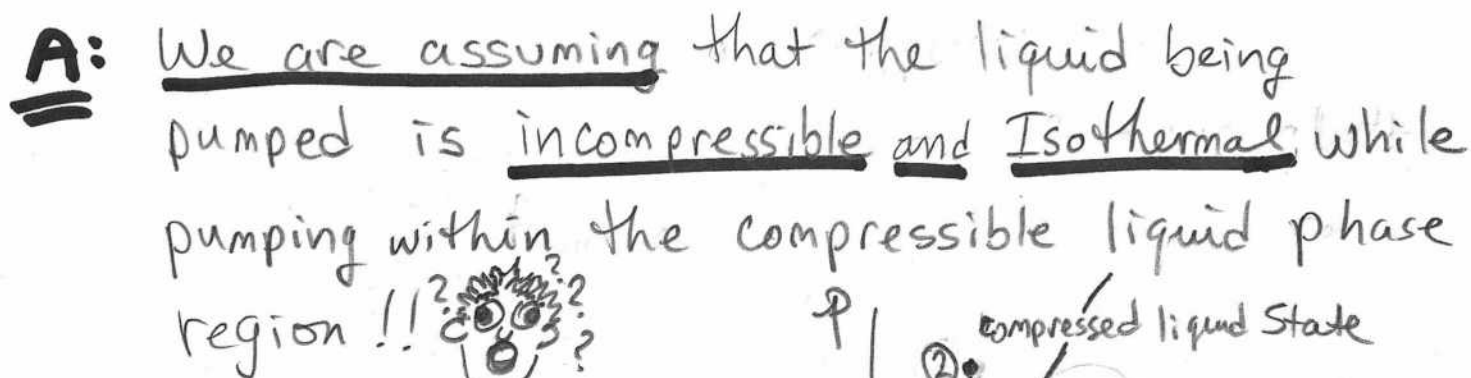 A: We are assuming that the liquid being
pumped is incompressible and Isothermal while
pumping within the compressible liquid phase
region !! ? ? ? ? ?
P
compressed liquid State
②